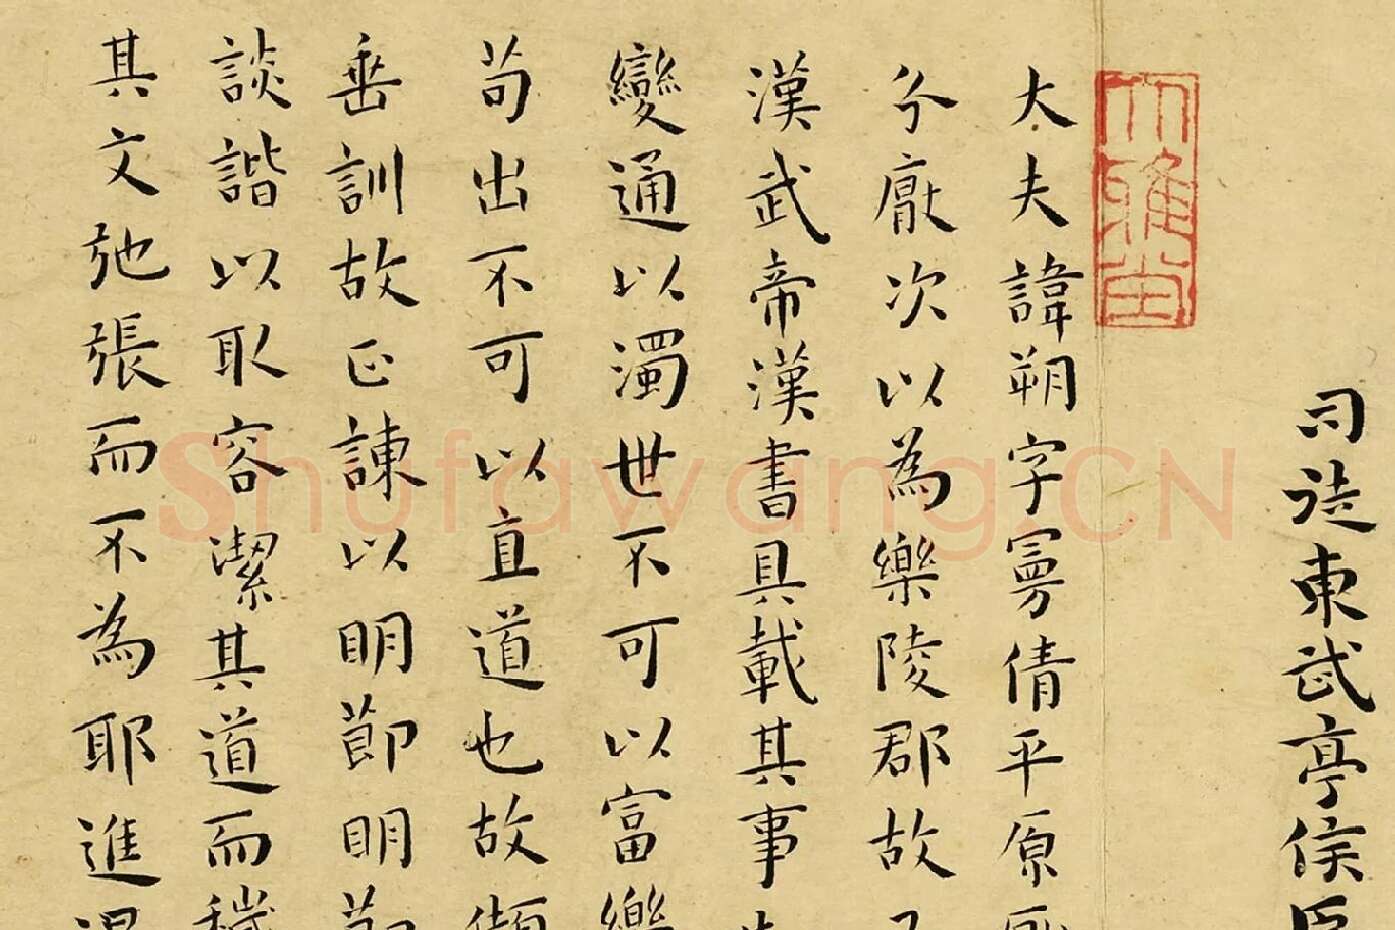 司徒東武亭侯臣
大夫諱朔字曼倩平原厭
分厭次以為樂陵郡故又
漢武帝漢書具載其事
變通以濁世不可以富樂
苟出不可以直道也故頡
垂訓故正諫以明節明節
談諧以取容潔其道而穢
其文弛張而不為耶進退
Shufawang.CN